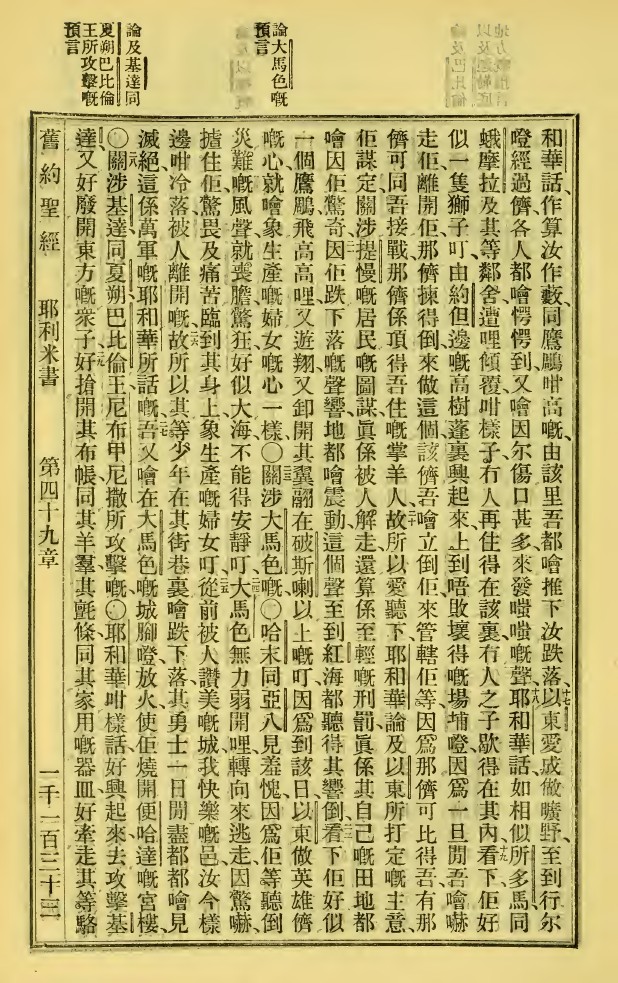 論大馬色嘅
預言
論及基達同
夏朔巴比倫
王所攻擊嘅
預言
和華話、作算汝作藪、同鷹鵰咁高嘅、由該里吾都噲推下汝跌落、以東愛成做曠野、至到行尔
噔經過儕各人都噲愕愕到、又噲因尔傷口甚多來發嗤嗤嘅聲、耶和華話、如相似所多馬同
蛾摩拉及其等鄰舍遭哩傾覆咁樣子、冇人再住得在該裏、冇人之子歇得在其內、看下、佢好
似一隻獅子叮、由約但邊嘅高樹蓬裏興起來、上到唔敗壞得嘅場埔噔、因爲一旦開吾噲嚇
走佢離開佢、那儕揀得倒來做這個、該儕吾噲立倒佢來管轄佢等、因爲那儕可比得吾、有那
儕可同吾接戰、那儕係頂得吾住嘅掌羊人、故所以愛聽下耶和華論及以東所打定嘅主意、
佢謀定關涉提慢嘅居民嘅圖謀、眞係被人解走、還算係至輕嘅刑罰、眞係其自己嘅田地都
噲因佢驚奇、因佢跌下落嘅聲響、地都噲震動、這個聲至到紅海都聽得其響倒、看下、佢好似
一個鷹鵰飛高高哩、又遊翔、又卸開其翼翮在破斯喇以上嘅叮、因爲到該日以東倣英雄儕
嘅心、就噲象生產嘅婦女嘅心一樣、〇關涉大馬色嘅、〇哈末同亞八見羞愧、因爲佢等聽倒
災難嘅風聲、就喪膽驚狂、好似大海不能得安靜叮、大馬色無力弱、開哩轉向來逃走、因驚嚇
揸住佢、驚畏及痛苦臨到其身上、象生產嘅婦女叮、從前被人讚美嘅城、我快樂嘅邑、汝今樣
邊咁冷落被人離開嘅、故所以其等少年在其街巷裏噲跌下落、其勇士一日開盡都都噲見
滅絕、這係萬軍嘅耶和華所話嘅、吾又噲在大馬色嘅城腳噔放火、使佢燒開便哈達嘅宮樓、
〇關涉基達同夏朔巴比倫王尼布甲尼撒所攻擊嘅、〇耶和華咁樣話、好興起來去攻擊基
達、又好廢開東方嘅衆子、好搶開其布帳同其羊羣、其氈條同其家用嘅器皿、好牽走其等駱
舊約聖經 耶利米書 第四十九章 一千一百三十三